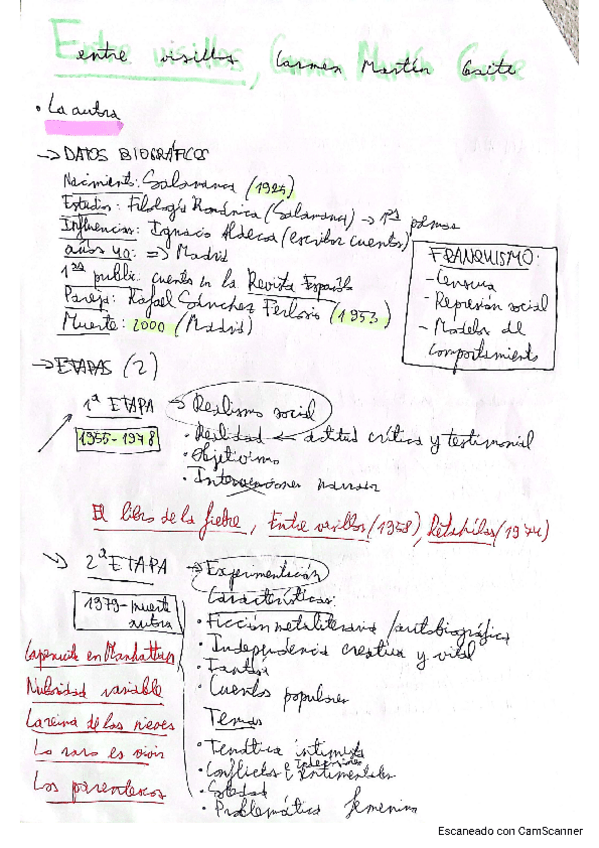 Entre visillos, Carmen Martín Gaite
• La autora
→ DATOS BIOGRÁFICOS
Nacimiento: Salamanca (1925)
Estudios: Filología Románica (Salamanca) → 1os poemas
Influencias: Ignacio Aldecoa (escritor cuentos)
años 40: => Madrid
1as public. cuentos en la Revista Española
Pareja: Rafael Sánchez Ferlosio (1953)
Muerte: 2000 (Madrid)
FRANQUISMO:
- Censura
- Represión social
- Modelos de
comportamiento
→ ETAPAS (2)
1ª ETAPA → Realismo social
1955-1978
• Realidad ← actitud crítica y testimonial
• Objetivismo
• Intervenciones narrador
El libro de la fiebre, Entre visillos (1958), Retahílas (1974)
2ª ETAPA → Experimentación
1979-muerte
autora
Características:
• Ficción metaliteraria / autobiográfica
• Independencia creativa y vital
• Fantasía
• Cuentos populares
Temas
• Temática intimista
• Conflictos e indecisiones sentimentales
• Soledad
• Problemática femenina
Caperucita en Manhattan
Nubosidad variable
La reina de las nieves
Lo raro es vivir
Los parentescos
Escaneado con CamScanner